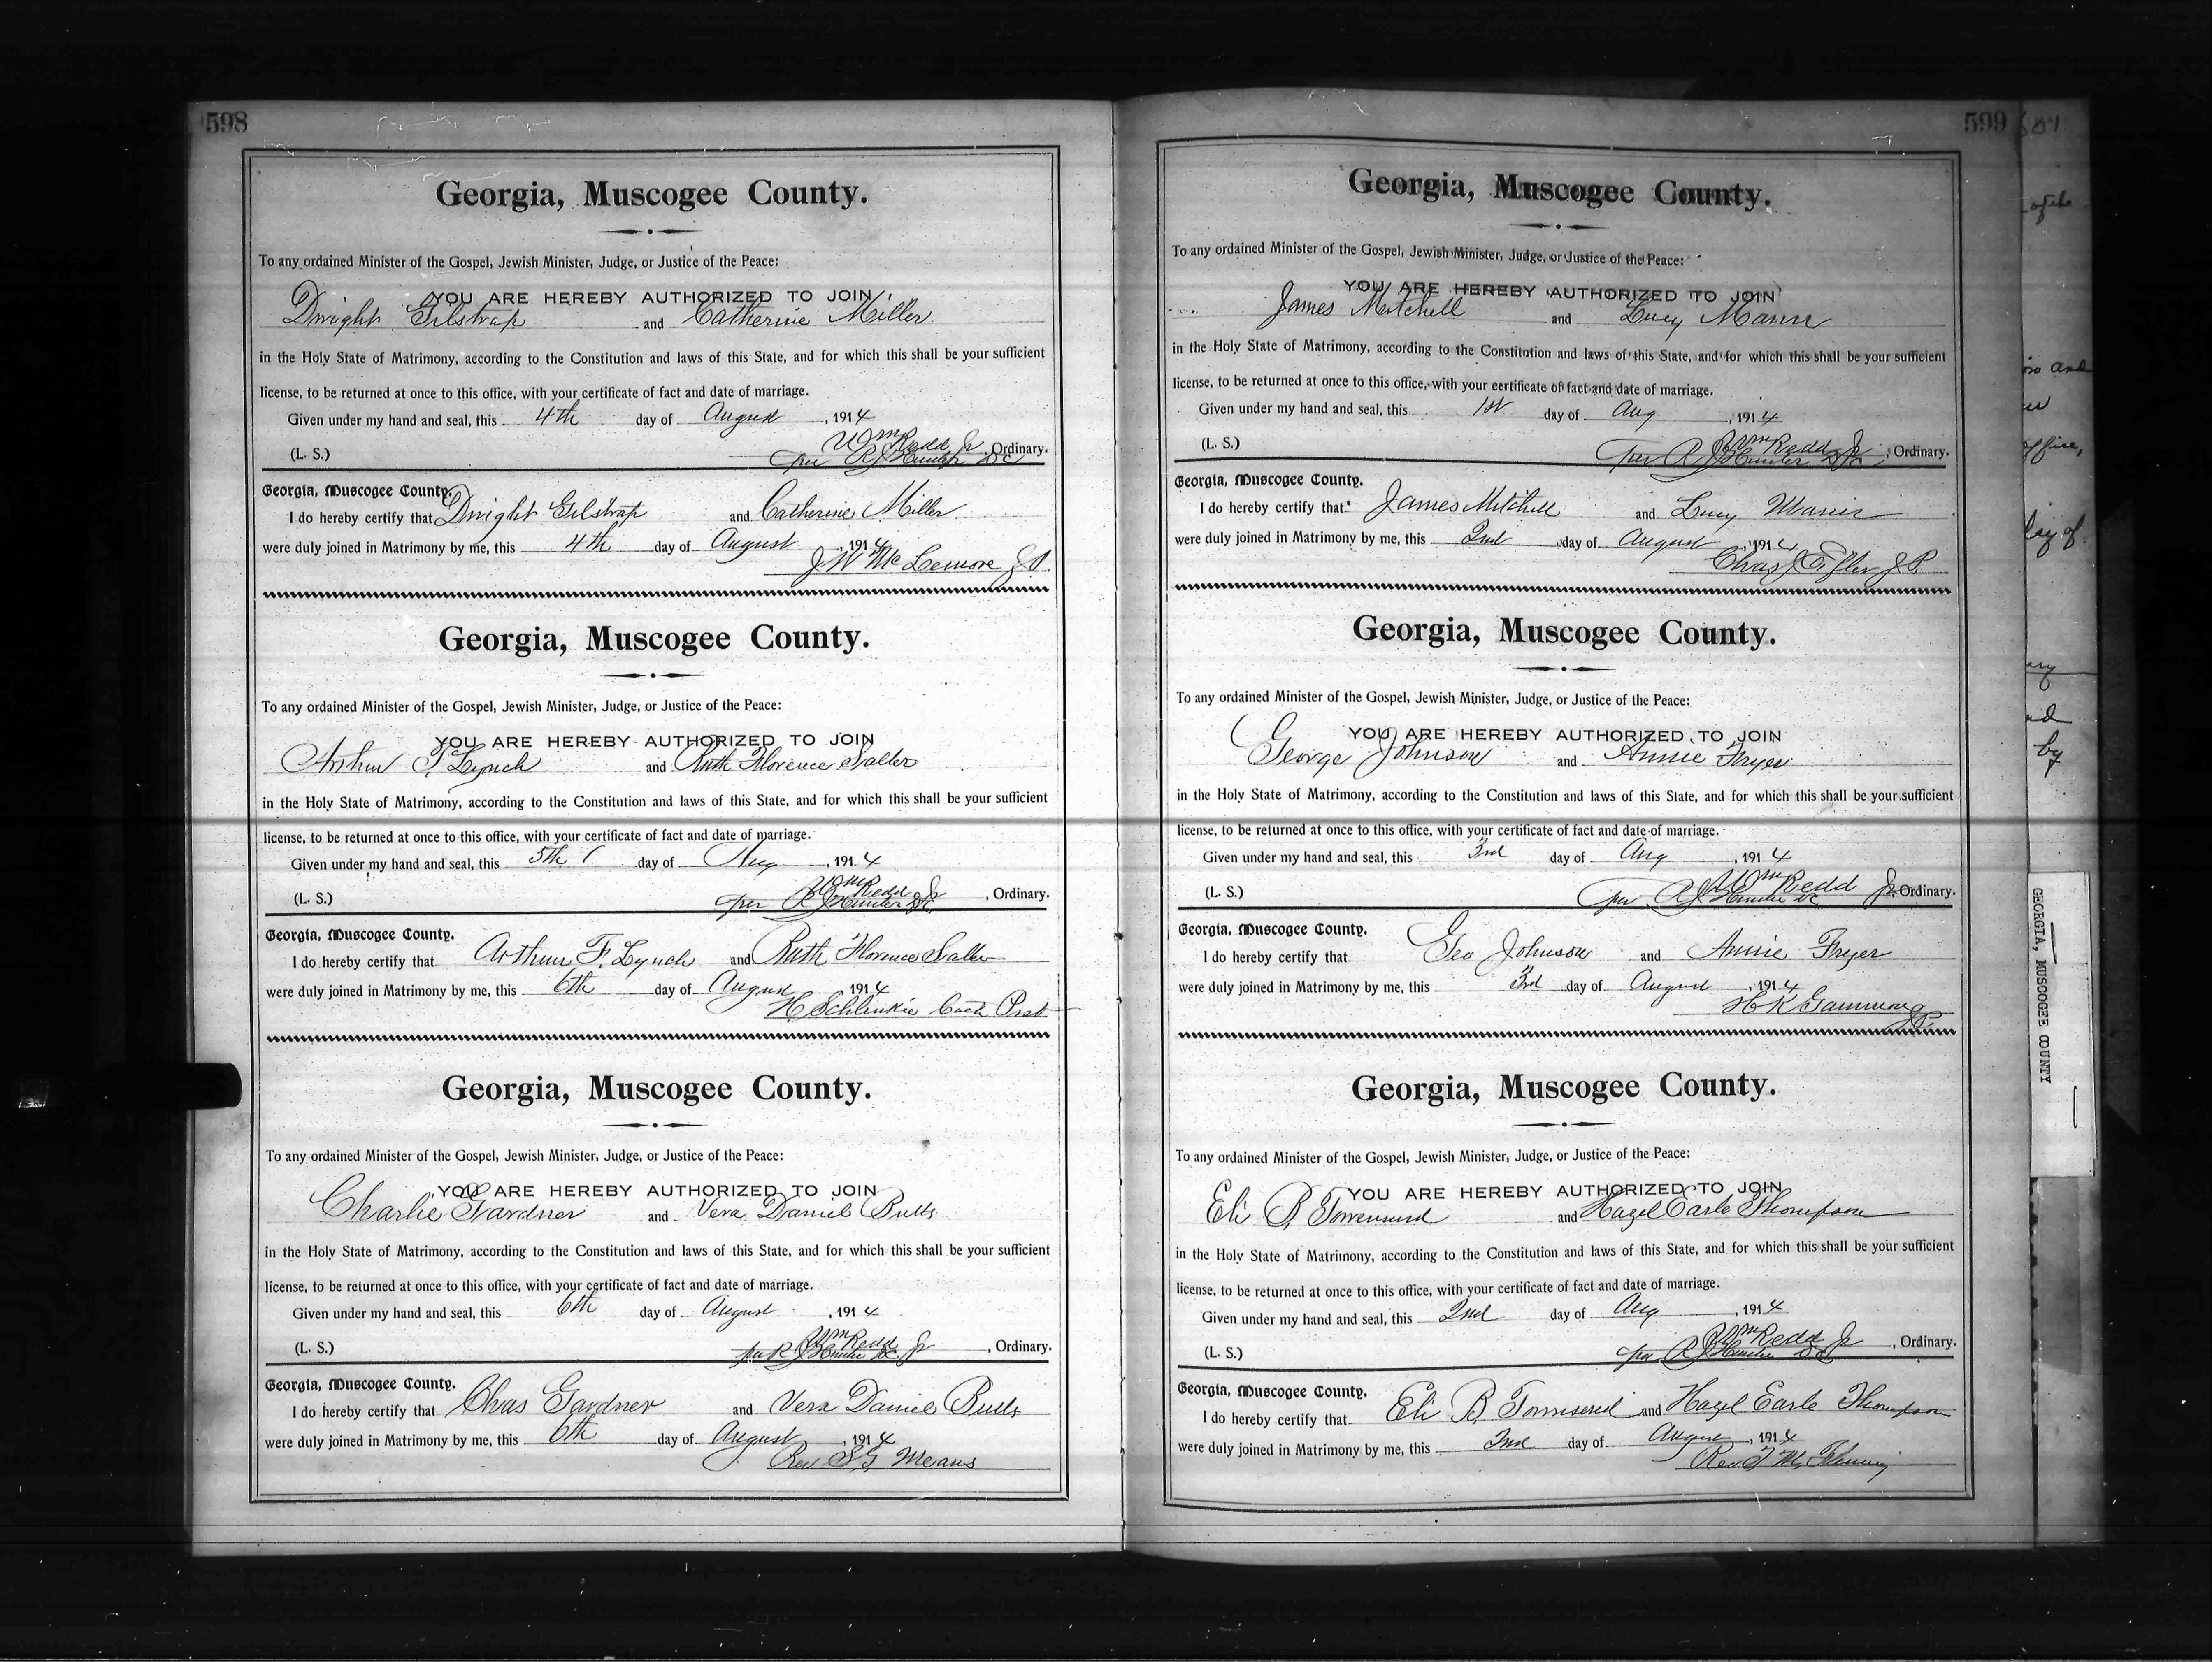 598
Georgia, Muscogee County.
To any ordained Minister of the Gospel, Jewish Minister, Judge, or Justice of the Peace:
YOU ARE HEREBY AUTHORIZED TO JOIN
Dwight Gilstrap and Catherine Miller
in the Holy State of Matrimony, according to the Constitution and laws of this State, and for which this shall be your sufficient
license, to be returned at once to this office, with your certificate of fact and date of marriage.
Given under my hand and seal, this 4th day of August, 1914
Wm Redd Jr
(L. S.) per R J Hunter DC, Ordinary.
Georgia, Muscogee County.
I do hereby certify that Dwight Gilstrap and Catherine Miller
were duly joined in Matrimony by me, this 4th day of August, 1914
J W McLemore J P.
Georgia, Muscogee County.
To any ordained Minister of the Gospel, Jewish Minister, Judge, or Justice of the Peace:
YOU ARE HEREBY AUTHORIZED TO JOIN
Arthur F. Lynch and Ruth Florence Salter
in the Holy State of Matrimony, according to the Constitution and laws of this State, and for which this shall be your sufficient
license, to be returned at once to this office, with your certificate of fact and date of marriage.
Given under my hand and seal, this 5th day of Aug, 1914
Wm Redd Jr
(L. S.) per R J Hunter, Ordinary.
Georgia, Muscogee County.
I do hereby certify that Arthur F. Lynch and Ruth Florence Salter
were duly joined in Matrimony by me, this 6th day of August, 1914
H Cath
Georgia, Muscogee County.
To any ordained Minister of the Gospel, Jewish Minister, Judge, or Justice of the Peace:
YOU ARE HEREBY AUTHORIZED TO JOIN
Charlie Gardner and Vera Daniel Butts
in the Holy State of Matrimony, according to the Constitution and laws of this State, and for which this shall be your sufficient
license, to be returned at once to this office, with your certificate of fact and date of marriage.
Given under my hand and seal, this 6th day of August, 1914
Wm Redd Jr
(L. S.) per R J Hunter DC, Ordinary.
Georgia, Muscogee County.
I do hereby certify that Chas Gardner and Vera Daniel Butts
were duly joined in Matrimony by me, this 6th day of August, 1914
Rev S G Means
599
Georgia, Muscogee County.
To any ordained Minister of the Gospel, Jewish Minister, Judge, or Justice of the Peace:
YOU ARE HEREBY AUTHORIZED TO JOIN
James Mitchell and Lucy Mann
in the Holy State of Matrimony, according to the Constitution and laws of this State, and for which this shall be your sufficient
license, to be returned at once to this office, with your certificate of fact and date of marriage.
Given under my hand and seal, this 1st day of Aug, 1914
Wm Redd Jr
(L. S.) per R J Hunter, Ordinary.
Georgia, Muscogee County.
I do hereby certify that James Mitchell and Lucy
were duly joined in Matrimony by me, this 2nd day of August, 1914
Chas J J P.
Georgia, Muscogee County.
To any ordained Minister of the Gospel, Jewish Minister, Judge, or Justice of the Peace:
YOU ARE HEREBY AUTHORIZED TO JOIN
George Johnson and Annie Fryer
in the Holy State of Matrimony, according to the Constitution and laws of this State, and for which this shall be your sufficient
license, to be returned at once to this office, with your certificate of fact and date of marriage.
Given under my hand and seal, this 3rd day of Aug, 1914
Wm Redd Jr
(L. S.) per R J Hunter DC Ordinary.
Georgia, Muscogee County.
I do hereby certify that Geo Johnson and Annie Fryer
were duly joined in Matrimony by me, this 3rd day of August, 1914
H K
J P.
Georgia, Muscogee County.
To any ordained Minister of the Gospel, Jewish Minister, Judge, or Justice of the Peace:
YOU ARE HEREBY AUTHORIZED TO JOIN
Eli B Townsend and Hazel Earle Thompson
in the Holy State of Matrimony, according to the Constitution and laws of this State, and for which this shall be your sufficient
license, to be returned at once to this office, with your certificate of fact and date of marriage.
Given under my hand and seal, this 2nd day of Aug, 1914
Wm Redd Jr
(L. S.) per R J Hunter DC, Ordinary.
Georgia, Muscogee County.
I do hereby certify that Eli B Townsend and Hazel Earle Thompson
were duly joined in Matrimony by me, this 2nd day of August, 1914
Rev. Fleming
of the
and
office,
day of
by
GEORGIA, MUSCOGEE COUNTY